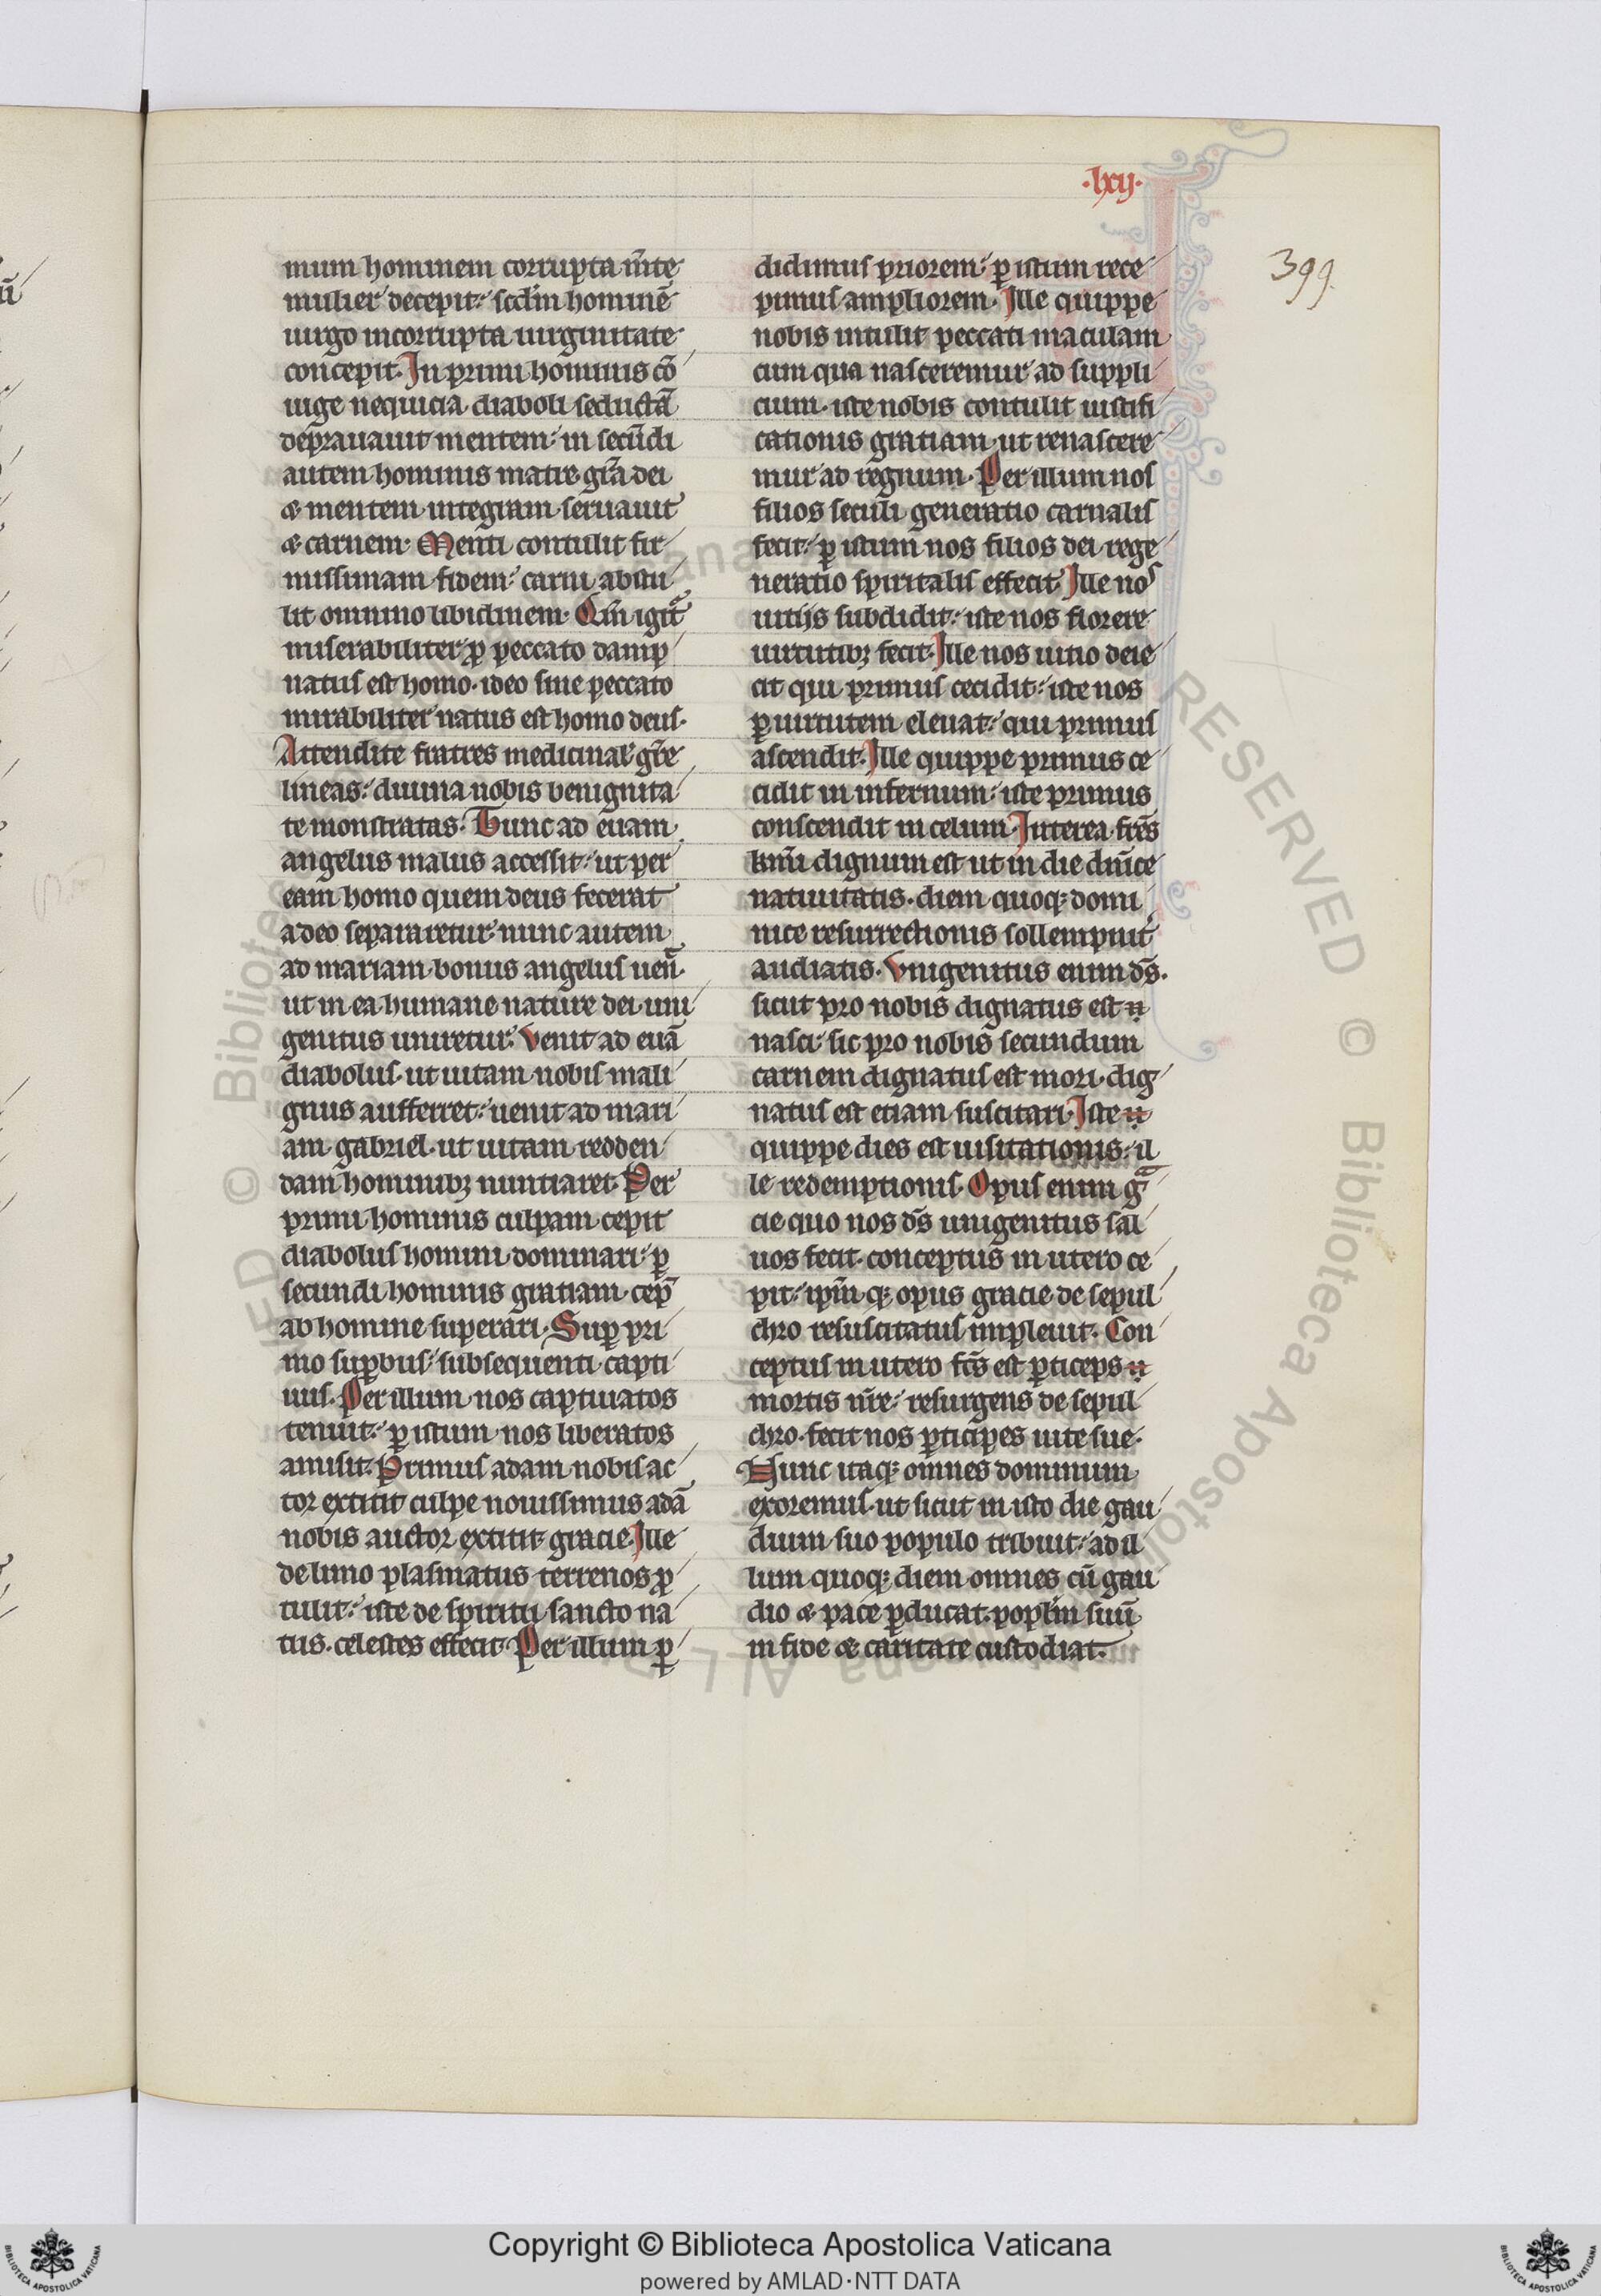 .lxij.
399.
mum hominem corrupta m̄te
mulier decepit: scd̄m hominē
uirgo incorrupta uirginitate
concepit. In primi hominis cō
iuge nequicia diaboli seductā
deprauauit mentem: in secūdi
autem hominis matre gr̄a dei
& mentem integram seruauit
& carnem. Menti contulit fir
missimam fidem: carni abstu
lit omnino libidinem. Qm̄ igit᷑
miserabiliter ꝓ peccato damp
natus est homo. ideo sine peccato
mirabiliter natus est homo deus.
Attendite fratres medicinal᷑ gr̄e
lineas: diuina nobis benignita
te monstratas. Tunc ad euam
angelus malus accessit: ut per
eam homo quem deus fecerat
a deo separaretur. nunc autem
ad mariam bonus angelus uen̄.
ut in ea humane nature dei uni
genitus uniretur. Venit ad euā
diabolus. ut uitam nobis mali
gnus aufferret: uenit ad mari
am gabriel. ut uitam redden
dam hominibꝫ nuntiaret. Per
primi hominis culpam cepit
diabolus homini dominari: ꝑ
secundi hominis gratiam cep̄
ab homine superari. Suꝑ pri
mo suꝑbus: subsequenti capti
uus. Per illum nos captiuatos
tenuit: ꝑ istum nos liberatos
amisit. Primus adam nobis ac
tor extitit culpe nouissimus adā
nobis auctor extitit gracie. Ille
de limo plasmatus terrenos ꝓ
tulit: iste de spiritu sancto na
tus. celestes effecit. Per illum ꝑ
didimus priorem: ꝑ istum rece
pimus ampliorem. Ille quippe
nobis intulit peccati maculam
cum qua nasceremur ad suppli
cium. iste nobis contulit iustifi
cationis gratiam ut renascere
mur ad regnum. Per illum nos
filios seculi generatio carnalis
fecit: ꝑ istum nos filios dei rege
neratio spiritalis effecit. Ille nos
uitijs subdidit: iste nos florere
uirtutibꝫ fecit. Ille nos uitio deie
cit qui primus cecidit: iste nos
ꝑ uirtutem eleuat: qui primus
ascendit. Ille quippe primus ce
cidit in infernum: iste primus
conscendit in celum. Interea fr̄es
km̄i dignum est ut in die dn̄ice
natiuitatis. diem quoqꝫ domi
nice resurrectionis sollempnit᷑
audiatis. Vnigenitus enim ds̄.
sicut pro nobis dignatus est
nasci: sic pro nobis secundum
carnem dignatus est mori. dig
natus est etiam suscitari. Iste
quippe dies est uisitationis: il
le redemptionis. Opus enim gᷓ
cie quo nos ds̄ unigenitus sal
uos fecit. conceptus in utero ce
pit: ip̄m qꝫ opus gracie de sepul
chro resuscitatus impleuit. Con
ceptus in utero fc̄s est ꝑticeps
mortis nr̄e: resurgens de sepul
chro. fecit nos ꝑticipes uite sue.
Hunc itaqꝫ omnes dominum
exoremus. ut sicut in isto die gau
dium suo populo tribuit: ad il
lum quoqꝫ diem omnes cū gau
dio & pace ꝑducat. popl̄m suū
in fide & caritate custodiat.
Copyright © Biblioteca Apostolica Vaticana
powered by AMLAD·NTT DATA